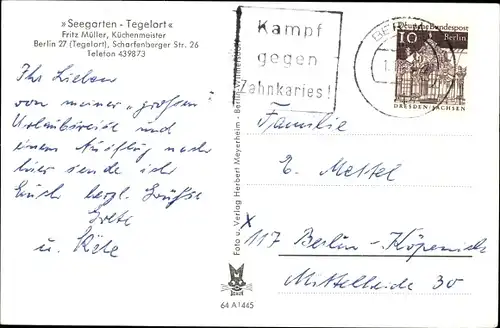 »Seegarten - Tegelort«
Fritz Müller, Küchenmeister
Berlin 27 (Tegelort), Scharfenberger Str. 26
Telefon 439873
Ihr Lieben
von meiner „großen"
Urlaubsreise und
einem Ausflug nach
hier sende ich
Euch herzl. Grüße
Grete
u. Käte
Foto u. Verlag Herbert Meyerheim - Berlin-Wilmersdorf
64 A1445
Kampf
gegen
Zahnkaries!
BERLIN
1
Deutsche Bundespost
10 Berlin
DRESDEN-SACHSEN
Familie
E. Mettel
x 117 Berlin-Köpenick
Mittelheide 30